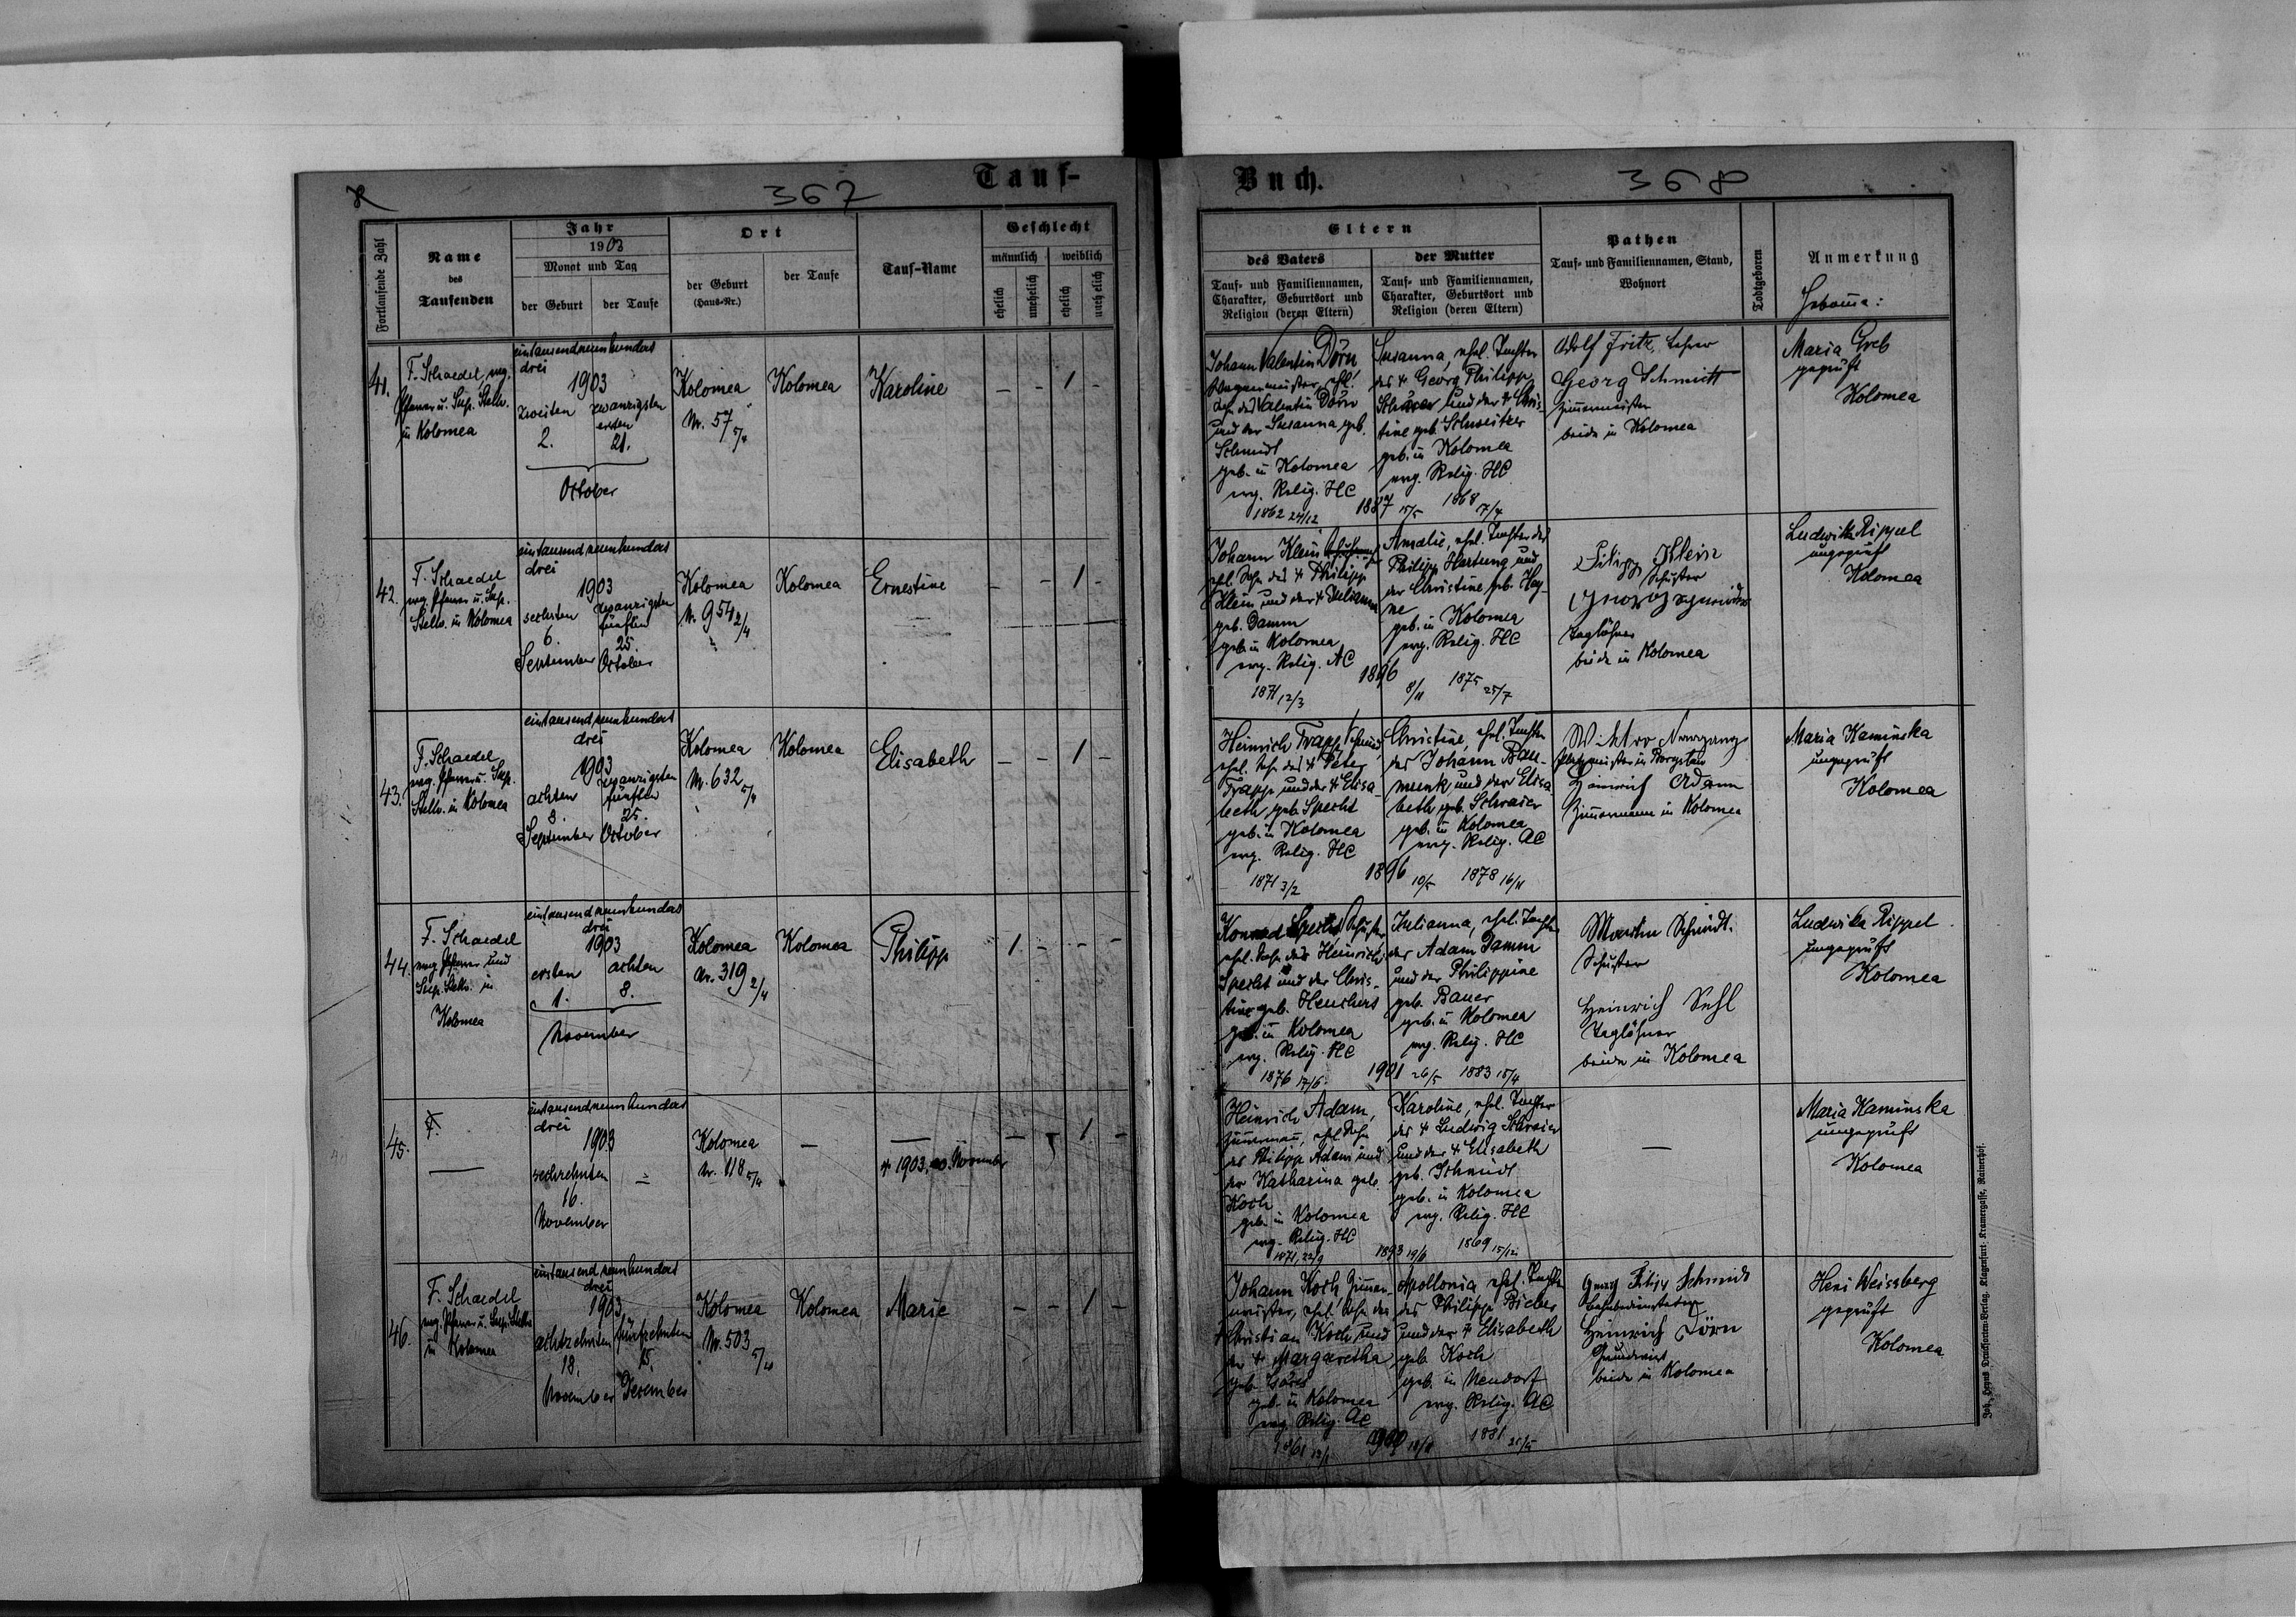 367
Tauf-
Fortlaufende Zahl
Name
des
Taufenden
Jahr
1903
Monat und Tag
der Geburt
der Taufe
Ort
der Geburt
(Haus-Nr.)
der Taufe
Tauf-Name
Geschlecht
männlich
weiblich
ehelich
unehelich
ehelich
unehelich
41.
F. Schaedel, evg.
Pfarrer u. Sup. Stellv.
in Kolomea
eintausendneunhundert
drei
1903
zweiten
2.
zwanzigsten
ersten
21.
October
Kolomea
Nr. 57 5/4
Kolomea
Karoline
- - 1 -
42.
F. Schaedel
evg. Pfarrer u. Sup.
Stellv. in Kolomea
eintausendneunhundert
drei
1903
sechsten
6.
September
zwanzigsten
fünften
25.
October
Kolomea
Nr. 954 2/4
Kolomea
Ernestine
- - 1 -
43.
F. Schaedel
evg. Pfarrer u. Sup.
Stellv. in Kolomea
eintausendneunhundert
drei
1903
achten
8.
September
zwanzigsten
fünften
25.
October
Kolomea
Nr. 632 5/4
Kolomea
Elisabeth
- - 1 -
44.
F. Schaedel
evg. Pfarrer und
Sup. Stellv. in
Kolomea
eintausendneunhundert
drei
1903
ersten
1.
achten
8.
November
Kolomea
Nr. 319 2/4
Kolomea
Philipp
1 - - -
45.
—
eintausendneunhundert
drei
1903
sechzehnten
16.
November
-
Kolomea
Nr. 118 5/4
—
—
† 1903, November
- - 1 -
46.
F. Schaedel
evg. Pfarrer u. Sup. Stellv.
in Kolomea
eintausendneunhundert
drei
1903
achtzehnten
18.
November
fünfzehnten
15.
Dezember
Kolomea
Nr. 503 5/4
Kolomea
Marie
- - 1 -
Buch.
368
Eltern
des Vaters
Tauf- und Familiennamen,
Charakter, Geburtsort und
Religion (deren Eltern)
der Mutter
Tauf- und Familiennamen,
Charakter, Geburtsort und
Religion (deren Eltern)
Pathen
Tauf- und Familiennamen, Stand,
Wohnort
Todtgeboren
Anmerkung
Hebame:
Johann Valentin Dörn
Wagnermeister, ehl.
Sohn des Valentin Dörn
und der Susanna geb.
Schmidt
geb. in Kolomea
evg. Relig. HC
1862 24/12
1887 15/5
Susanna, ehel. Tochter
des † Georg Philipp
und der † Chris-
tine geb. Schweitzer
geb. in Kolomea
evg. Relig. HC
1868 17/4
Adolf Fritz, Lehrer
Georg Schmidt
Zimmermeister
beide in Kolomea
Maria Greb
geprüft
Kolomea
Johann Klein
ehl. Sohn des † Philipp
Klein und der † Juliann
geb. Damm
geb. in Kolomea
evg. Relig. AC
1871 12/3
1896 8/11
Amalie, ehel. Tochter des
Philipp Hartung und
der Christine geb. Hey-
ne
geb. in Kolomea
evg. Relig. HC
1875 25/7
Filipp Klein
Schuster
Taglöhner
beide in Kolomea
Ludwika Rippel
ungeprüft
Kolomea
Heinrich Trapp
ehel. Sohn des † Peter
Trapp und der † Elisa-
beth geb. Specht
geb. in Kolomea
evg. Relig. HC
1871 3/2
1896 10/5
Christine, ehel. Tochter
des Johann Bau-
munk und der Elisa-
beth geb. Schraier
geb. in Kolomea
evg. Relig. AC
1878 16/11
Heinrich Adam
Zimmermann in Kolomea
Maria Kaminska
ungeprüft
Kolomea
Konrad Specht Schuster
ehel. Sohn des Heinrich
Specht und der Chris-
tine geb. Heuchert
geb. in Kolomea
evg. Relig. HC
1876 17/6
1901 26/5
Julianna, ehel. Tochter
des Adam Damm
und der Philippine
geb. Bauer
geb. in Kolomea
evg. Relig. HC
1883 15/4
Martin Schmidt
Schuster
Heinrich Sehl
Taglöhner
beide in Kolomea
Ludwika Rippel
ungeprüft
Kolomea
Heinrich Adam,
Zimmermann, ehel. Sohn
des Philipp Adam und
der Katharina geb.
Koch
geb. in Kolomea
evg. Relig. HC
1871, 22/9
Karoline, ehel. Tochter
des † Ludwig Schraier
und der † Elisabeth
geb. Schmidt
geb. in Kolomea
evg. Relig. HC
1869 15/12
—
—
Maria Kaminska
ungeprüft
Kolomea
Johann Koch, Zimmer-
meister, ehel. Sohn des
Christian Koch und
der † Margaretha
geb. in Kolomea
evg. Relig. AC
1861
Apollonia ehel. Tochter
des Philipp Bieber
und der † Elisabeth
geb. Koch
geb. in Neudorf
evg. Relig. AC
1881 21/5
Georg Filipp Schmidt
Heinrich Dörn
Grundwirt
beide in Kolomea
Heni Weissberg
geprüft
Kolomea
Joh. Heyns Drucksorten-Verlag, Klagenfurt, Kramergasse, Rainerhof.